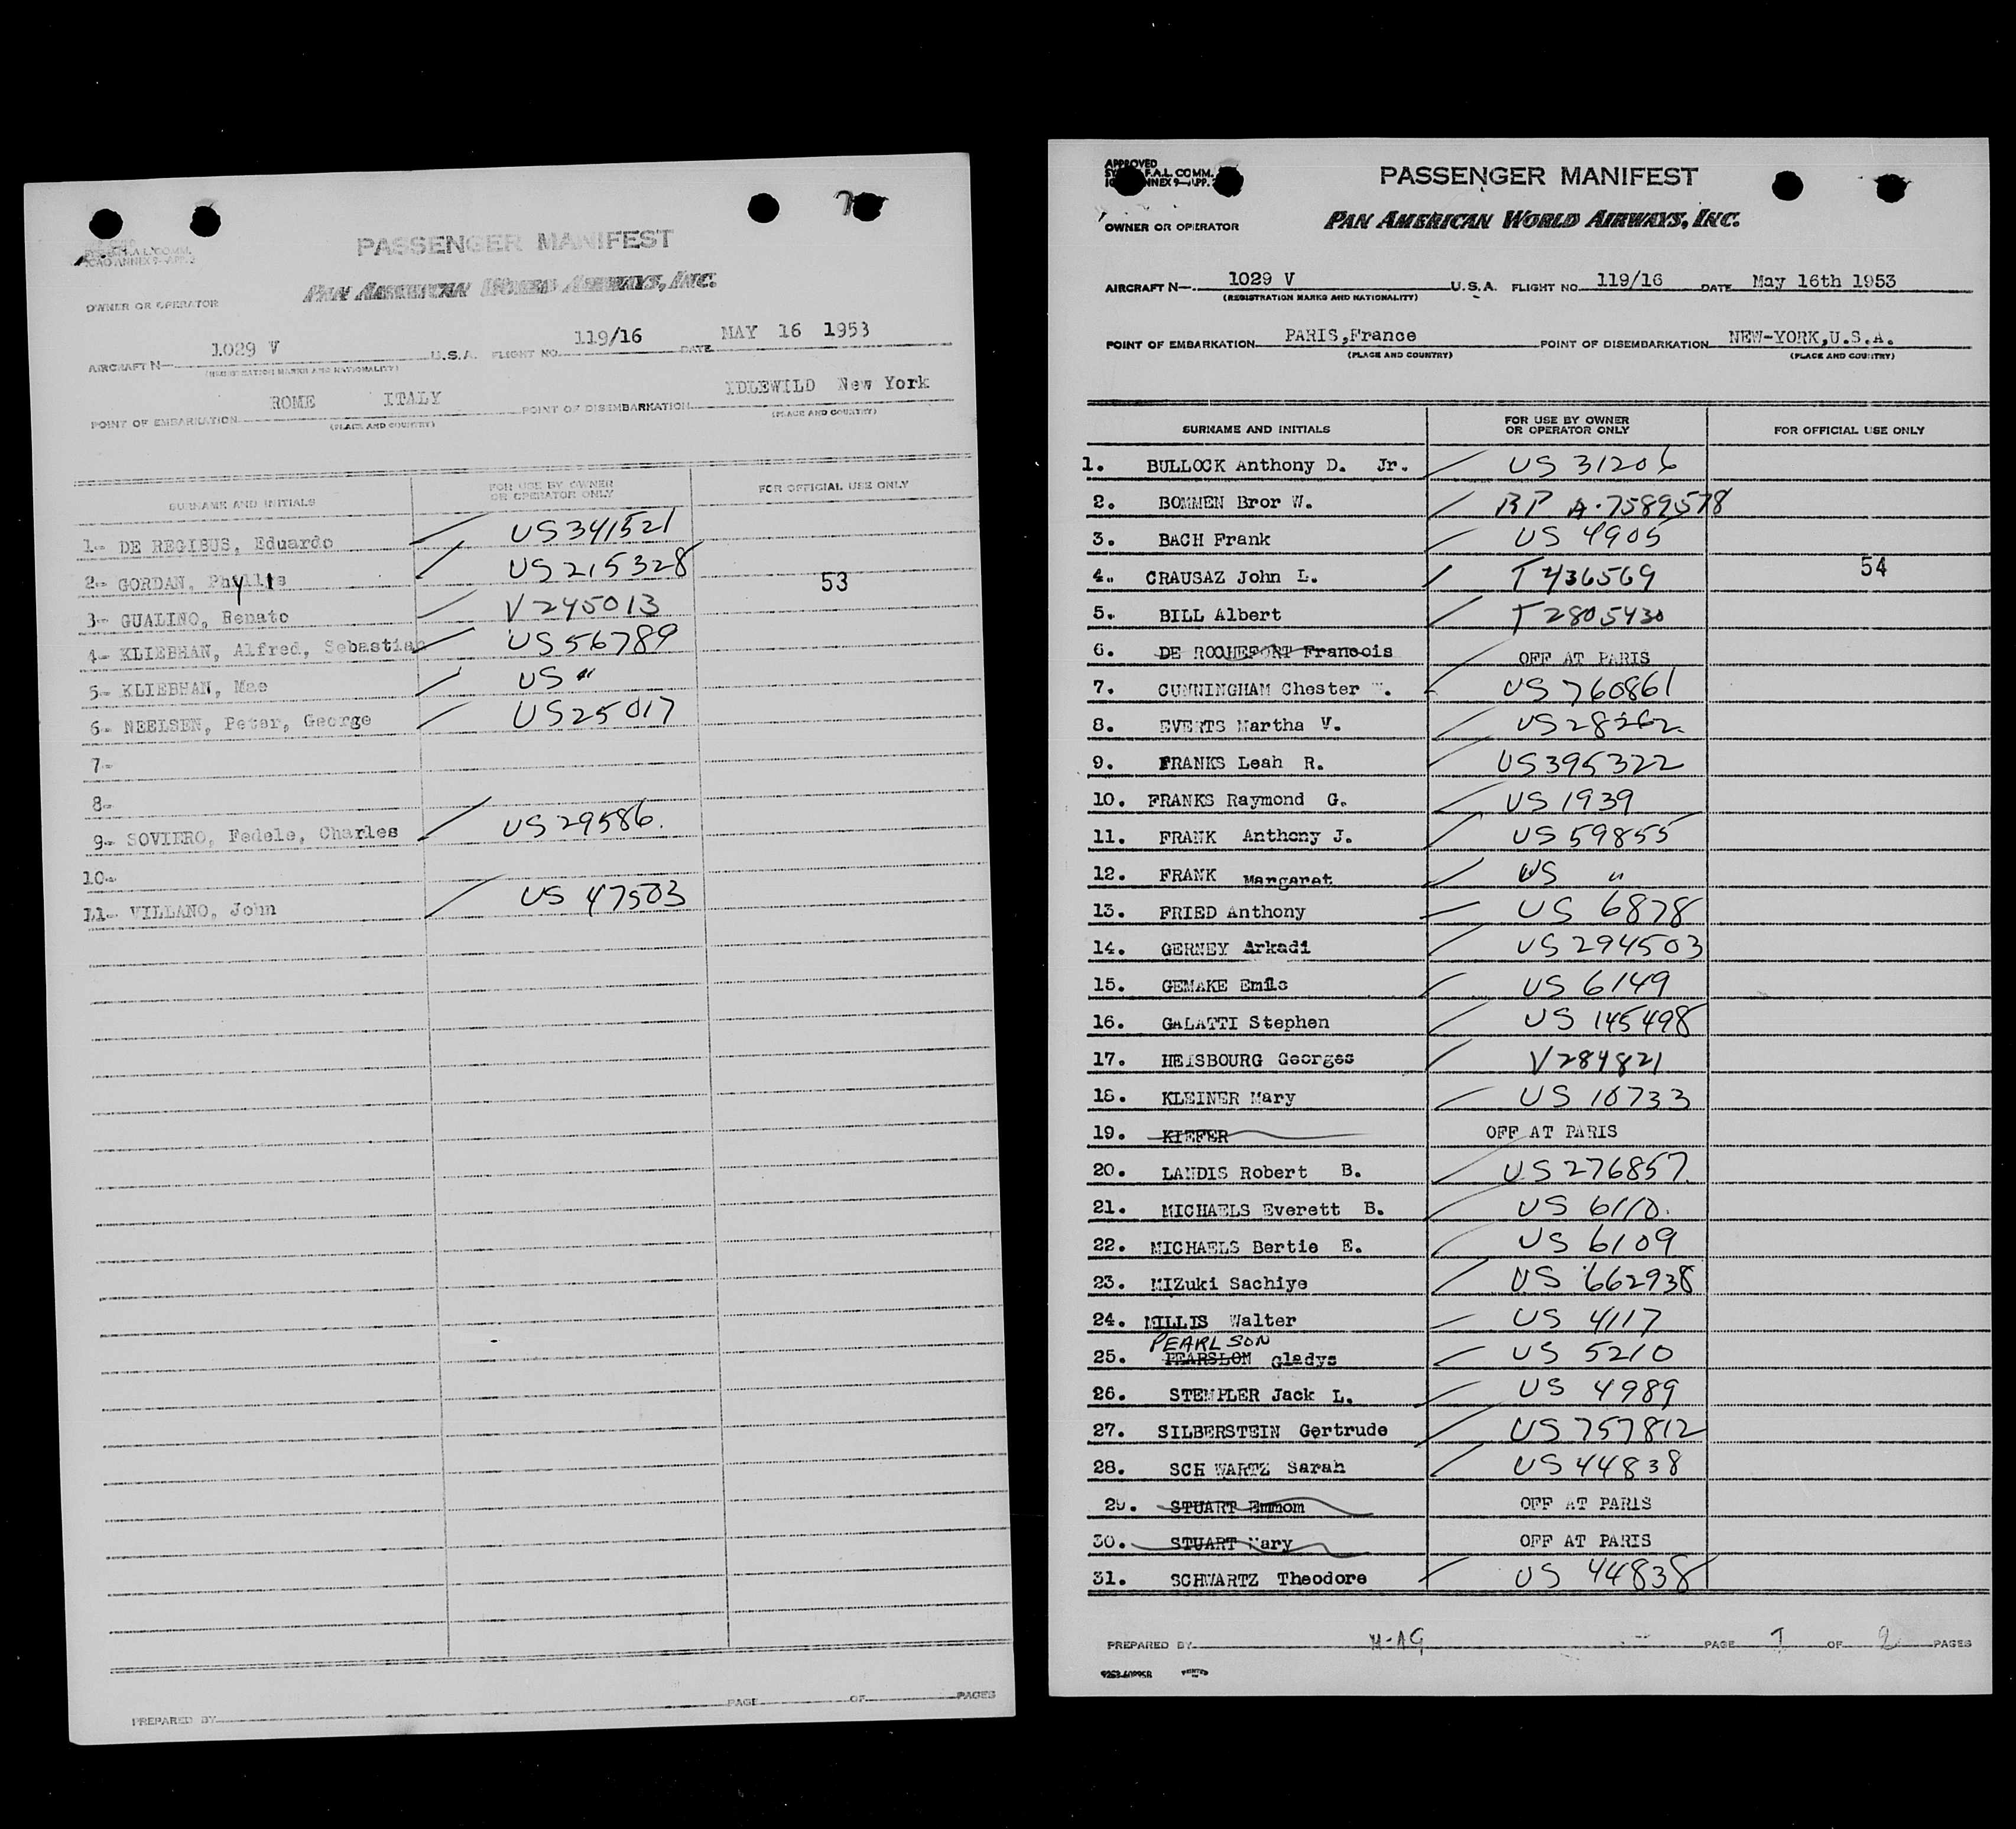 PASSENGER MANIFEST
PAN AMERICAN WORLD AIRWAYS, INC.
ICAO ANNEX 9-APP. 3
OWNER OR OPERATOR
AIRCRAFT N— 1029 V U.S.A. FLIGHT NO. 119/16 DATE MAY 16 1953
(REGISTRATION MARKS AND NATIONALITY)
POINT OF EMBARKATION ROME ITALY POINT OF DISEMBARKATION IDLEWILD New York
(PLACE AND COUNTRY) (PLACE AND COUNTRY)
SURNAME AND INITIALS FOR USE BY OWNER OR OPERATOR ONLY FOR OFFICIAL USE ONLY
1- DE REGIBUS, Eduardo US 341521
2- GORDAN, Phyllis US 215328 53
3- GUALINO, Renato V 245013
4- KLIEBHAN, Alfred, Sebastian US 56789
5- KLIEBHAN, Mae US "
6- NEELSEN, Peter, George US 25017
7-
8-
9- SOVIERO, Fedele, Charles US 29586.
10-
11- VILLANO, John US 47503
PREPARED BY PAGE OF PAGES
APPROVED
F.A.L. COMM.
ANNEX 9-APP.
PASSENGER MANIFEST
OWNER OR OPERATOR PAN AMERICAN WORLD AIRWAYS, INC.
AIRCRAFT N— 1029 V U.S.A. FLIGHT NO. 119/16 DATE May 16th 1953
(REGISTRATION MARKS AND NATIONALITY)
POINT OF EMBARKATION PARIS,France POINT OF DISEMBARKATION NEW-YORK,U.S.A.
(PLACE AND COUNTRY) (PLACE AND COUNTRY)
SURNAME AND INITIALS FOR USE BY OWNER OR OPERATOR ONLY FOR OFFICIAL USE ONLY
1. BULLOCK Anthony D. Jr. US 31206
2. BOMMEN Bror W. RP A-7589578
3. BACH Frank US 4905
4. CRAUSAZ John L. T 436569 54
5. BILL Albert T 2805430
6. DE ROCHEFORT Francois OFF AT PARIS
7. CUNNINGHAM Chester US 760861
8. EVERTS Martha V. US 28262
9. FRANKS Leah R. US 395322
10. FRANKS Raymond G. US 1939
11. FRANK Anthony J. US 59855
12. FRANK Margaret US "
13. FRIED Anthony US 6878
14. GERNEY Arkadi US 294503
15. GEMAKE Emile US 6149
16. GALATTI Stephen US 145498
17. HEISBOURG Georges V 284821
18. KLEINER Mary US 10733
19. KIEFER OFF AT PARIS
20. LANDIS Robert B. US 276857.
21. MICHAELS Everett B. US 6110.
22. MICHAELS Bertie E. US 6109
23. MIZuki Sachiye US 662938
24. MILLIS Walter US 4117
PEARLSON
25. PEARSLON Gladys US 5210
26. STEMPLER Jack L. US 4989
27. SILBERSTEIN Gertrude US 757812
28. SCH WARTZ Sarah US 44838
29. STUART Emmom OFF AT PARIS
30. STUART Mary OFF AT PARIS
31. SCHWARTZ Theodore US 44838
PREPARED BY M-AG PAGE I OF 2 PAGES
PRINTED